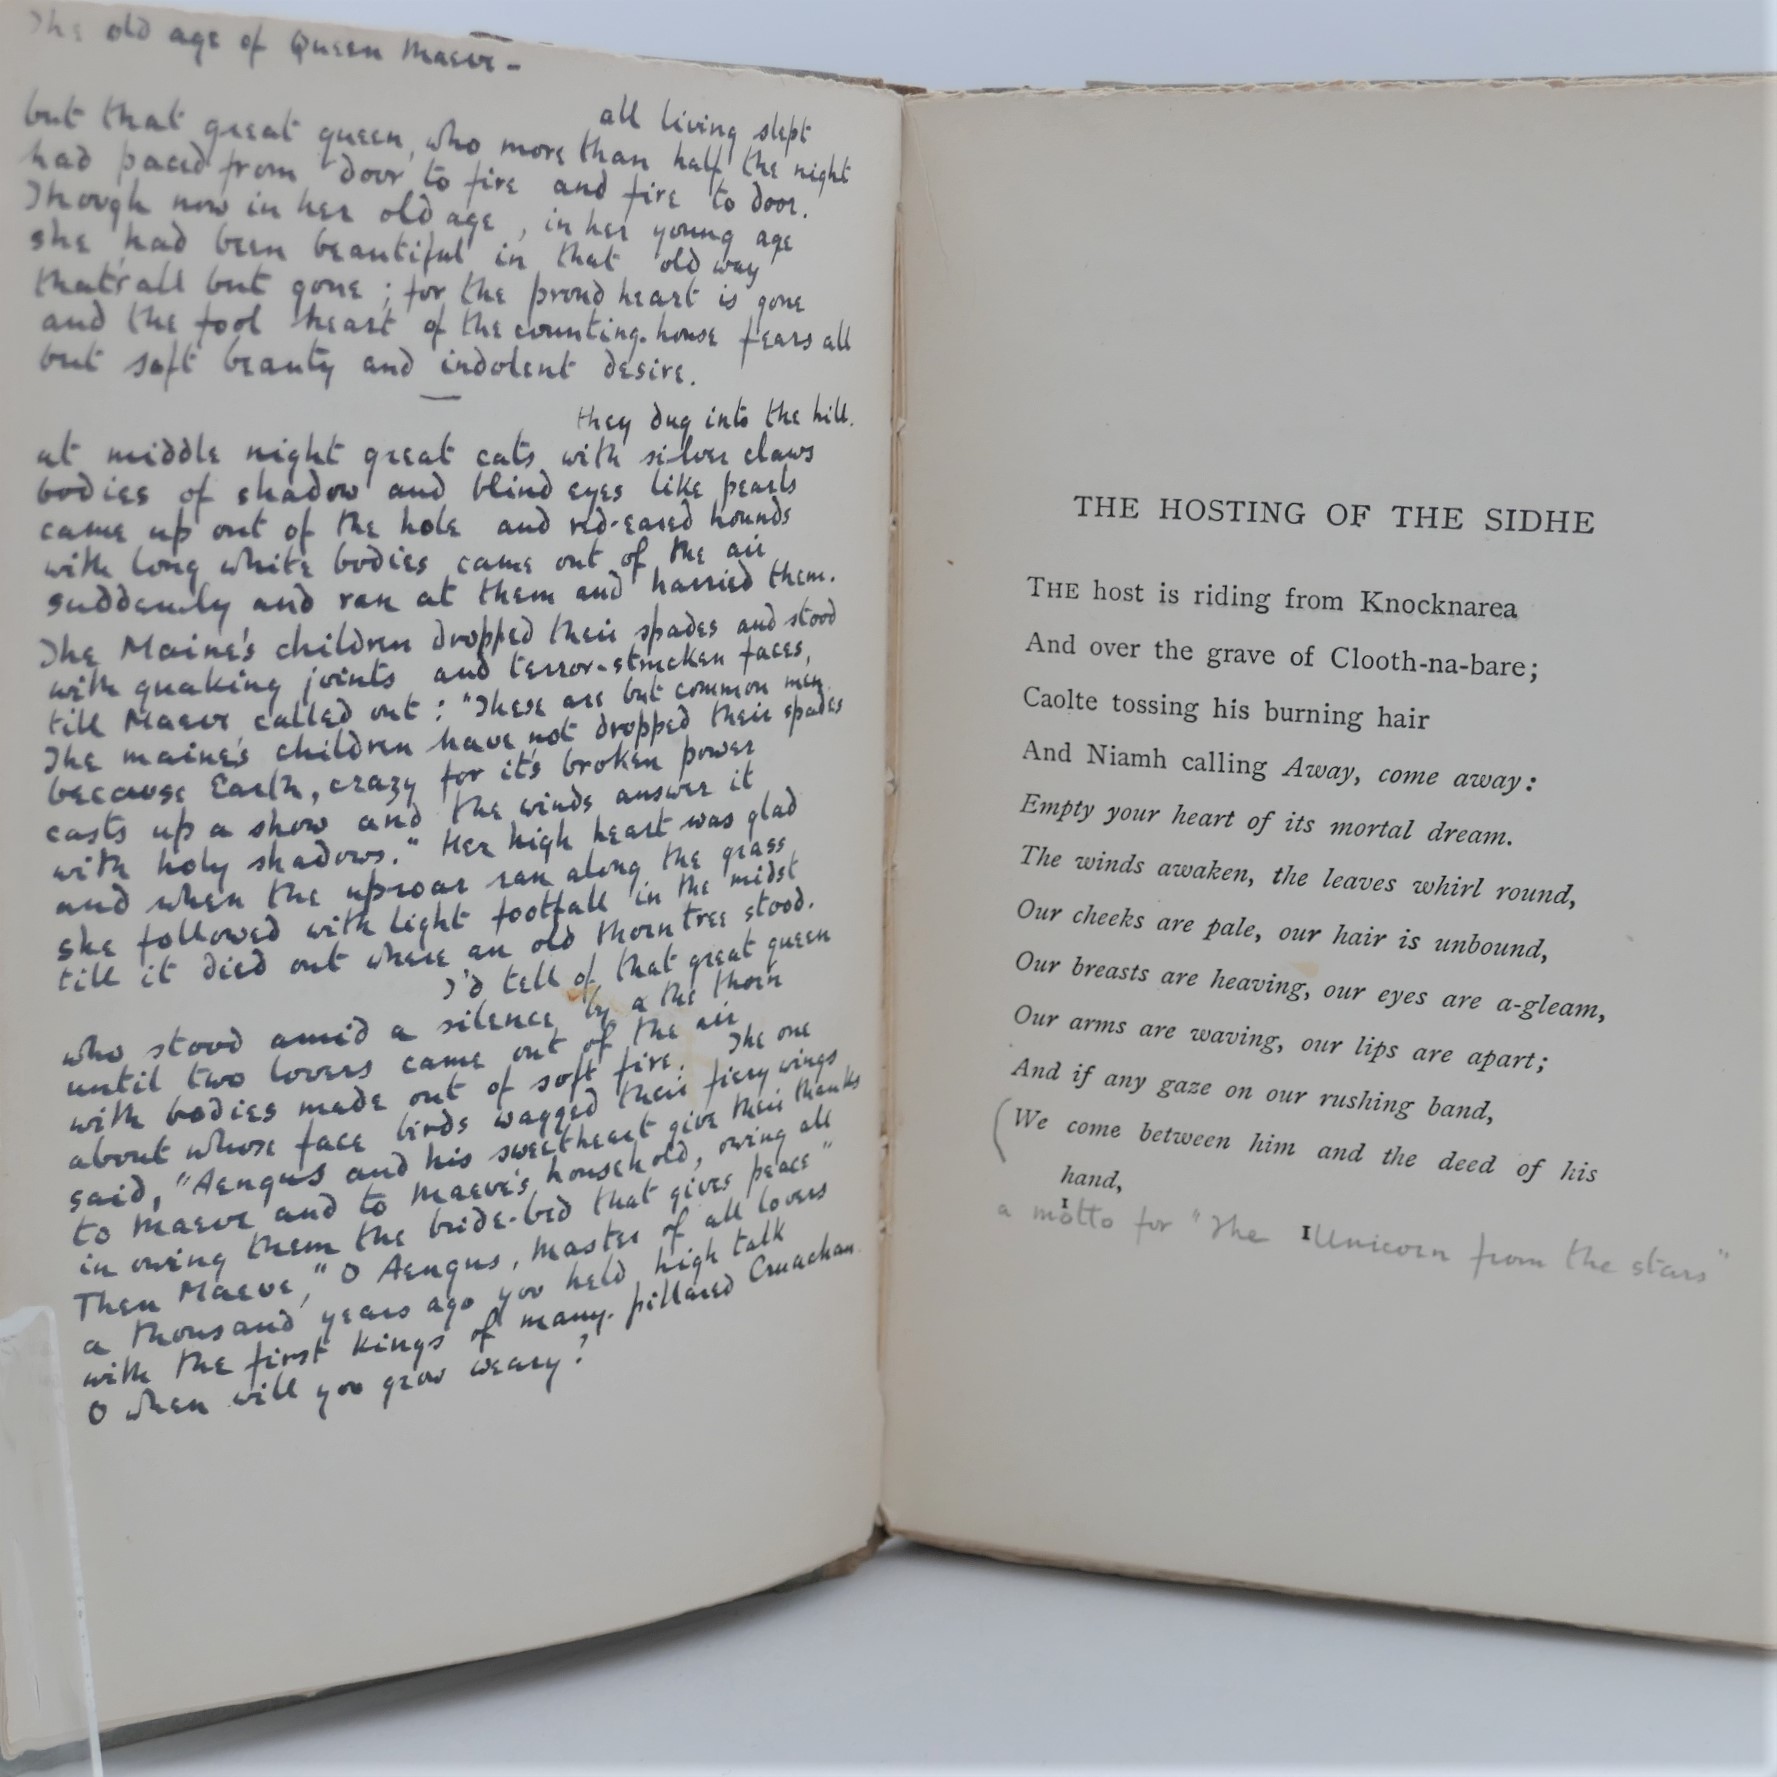 The old age of Queen Maeve -
all living slept
but that great queen, who more than half the night
had paced from door to fire and fire to door.
Though now in her old age, in her young age
she had been beautiful in that old way
that's all but gone; for the proud heart is gone
and the fool heart of the counting-house fears all
but soft beauty and indolent desire.
they dug into the hill.
at middle night great cats with silver claws
bodies of shadow and blind eyes like pearls
came up out of the hole and red-eared hounds
with long white bodies came out of the air
suddenly and ran at them and harried them.
The Maine's children dropped their spades and stood
with quaking joints and terror-stricken faces,
till Maeve called out: "These are but common men.
The maine's children have not dropped their spades
because Earth, crazy for it's broken power
casts up a show and the winds answer it
with holy shadows." Her high heart was glad
and when the uproar ran along the grass
she followed with light footfall in the midst
till it died out where an old thorn tree stood.
I'd tell of that great queen
who stood amid a silence by a the thorn
until two lovers came out of the air
with bodies made out of soft fire. The one
about whose face birds wagged their fiery wings
said, "Aengus and his sweetheart give their thanks
to Maeve and to Maeve's household, owing all
in owing them the bride-bed that gives peace"
Then Maeve, "O Aengus, master of all lovers
a thousand years ago you held high talk
with the first kings of many-pillared Cruachan.
O when will you grow weary?
THE HOSTING OF THE SIDHE
THE host is riding from Knocknarea
And over the grave of Clooth-na-bare;
Caolte tossing his burning hair
And Niamh calling Away, come away:
Empty your heart of its mortal dream.
The winds awaken, the leaves whirl round,
Our cheeks are pale, our hair is unbound,
Our breasts are heaving, our eyes are a-gleam,
Our arms are waving, our lips are apart;
And if any gaze on our rushing band,
(We come between him and the deed of his
hand,
1
a motto for "The Unicorn from the stars"